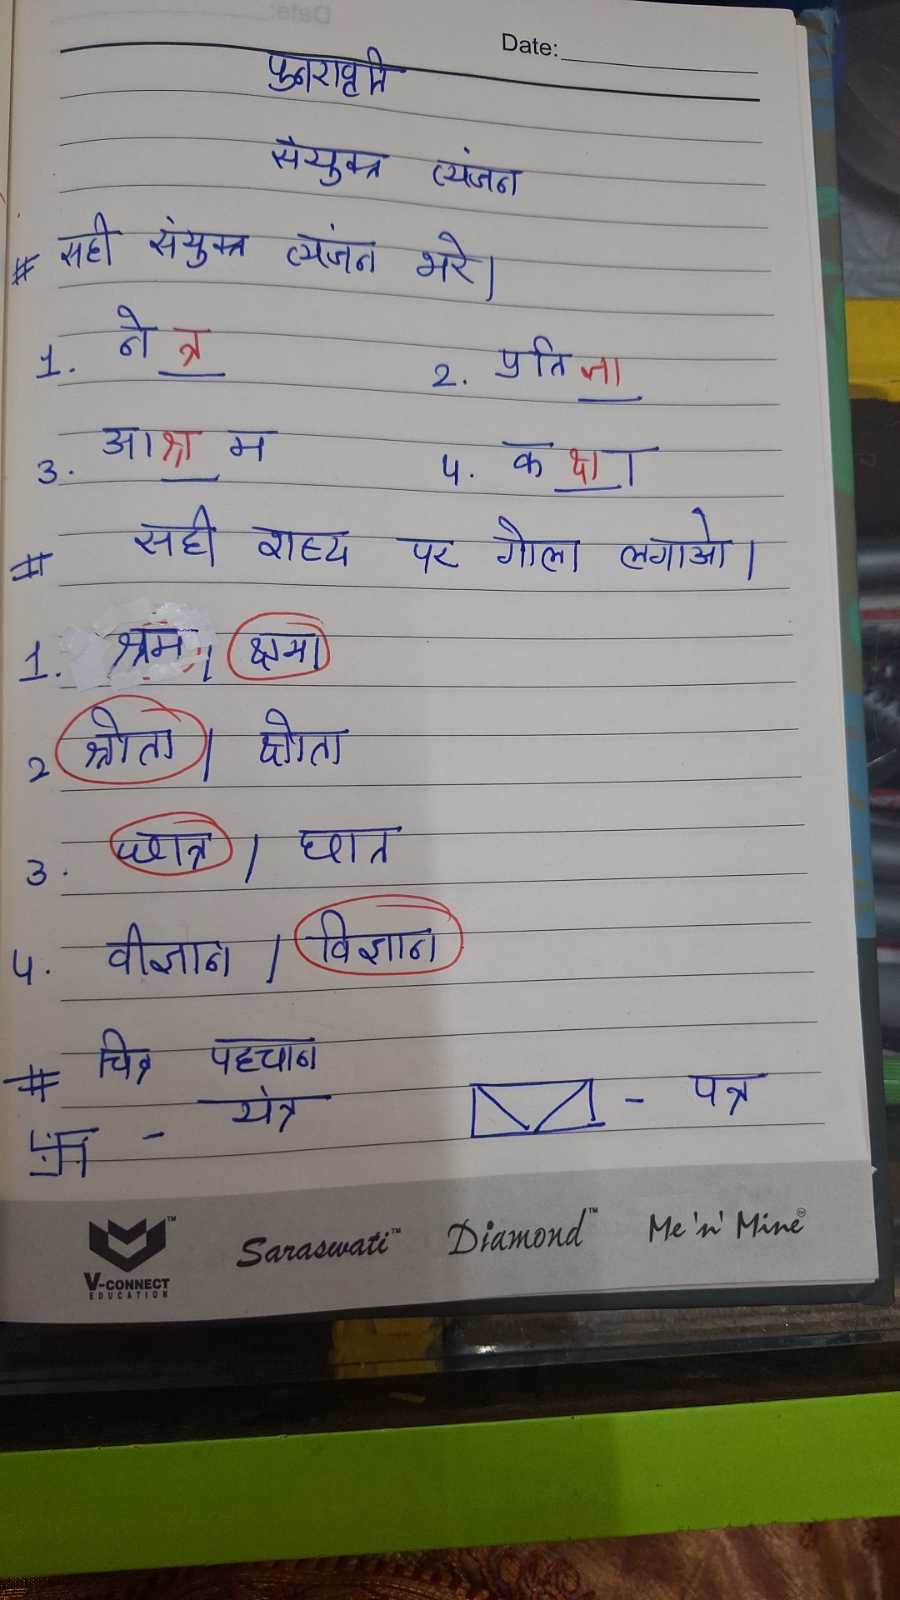 Date:
पुनरावृति
संयुक्त व्यंजन
# सही संयुक्त व्यंजन भरे।
1. ने त्र 2. प्रति ज्ञा
3. आ श्र म 4. क क्ष ा
# सही शब्द पर गोला लगाओ।
1. श्रम / क्षमा
2 श्रोता / क्षोता
3. छात्र / छात
4. वीज्ञान / विज्ञान
# चित्र पहचान
- यंत्र - पत्र
V-CONNECT EDUCATION Saraswati™ Diamond™ Me 'n' Mine®